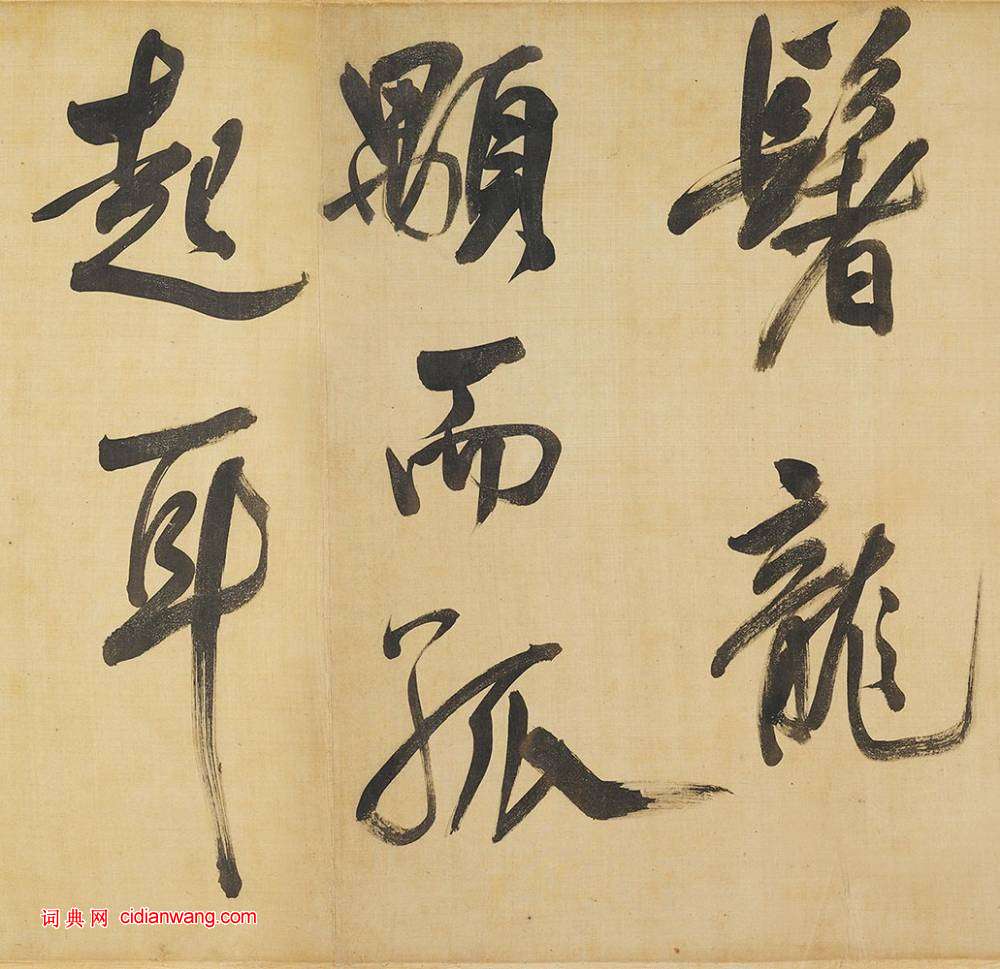 鬐龍
顒而孤
起耳
词典网 cidianwang.com